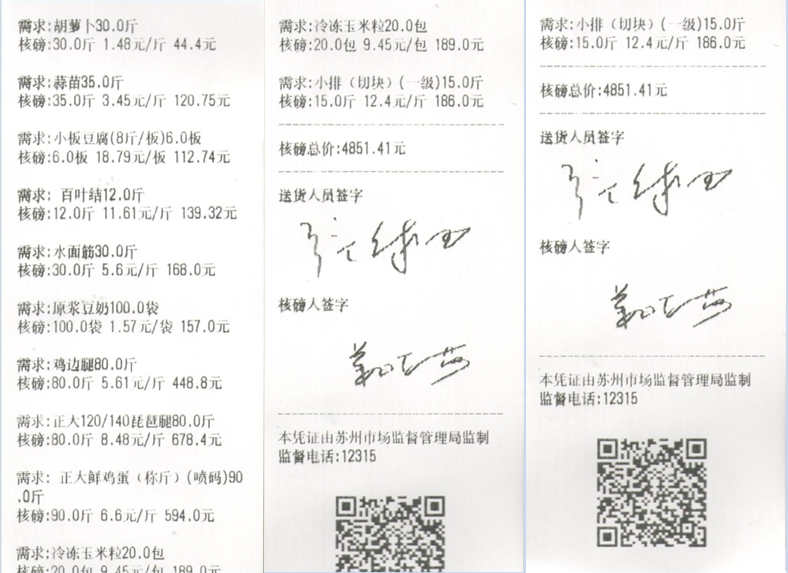 需求:胡萝卜30.0斤
核磅:30.0斤 1.48元/斤 44.4元
需求:蒜苗35.0斤
核磅:35.0斤 3.45元/斤 120.75元
需求:小板豆腐(8斤/板)6.0板
核磅:6.0板 18.79元/板 112.74元
需求: 百叶结12.0斤
核磅:12.0斤 11.61元/斤 139.32元
需求:水面筋30.0斤
核磅:30.0斤 5.6元/斤 168.0元
需求:原浆豆奶100.0袋
核磅:100.0袋 1.57元/袋 157.0元
需求:鸡边腿80.0斤
核磅:80.0斤 5.61元/斤 448.8元
需求:正大120/140琵琶腿80.0斤
核磅:80.0斤 8.48元/斤 678.4元
需求: 正大鲜鸡蛋(称斤)(喷码)90
.0斤
核磅:90.0斤 6.6元/斤 594.0元
需求:冷冻玉米粒20.0包
核磅:20.0包 9.45元/包 189.0元
需求:冷冻玉米粒20.0包
核磅:20.0包 9.45元/包 189.0元
需求:小排(切块)(一级)15.0斤
核磅:15.0斤 12.4元/斤 186.0元
核磅总价:4851.41元
送货人员签字
核磅人签字
本凭证由苏州市场监督管理局监制
监督电话:12315
需求:小排(切块)(一级)15.0斤
核磅:15.0斤 12.4元/斤 186.0元
核磅总价:4851.41元
送货人员签字
核磅人签字
本凭证由苏州市场监督管理局监制
监督电话:12315